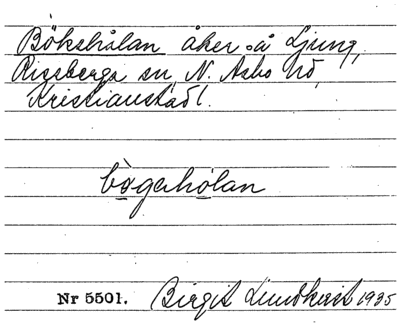 Bökshålan åker å Ljung,
Riseberga sn, N. Åsbo hd,
Kristianstad l.
bögahólan
Nr 5501. Birgit Lundkvist 1935